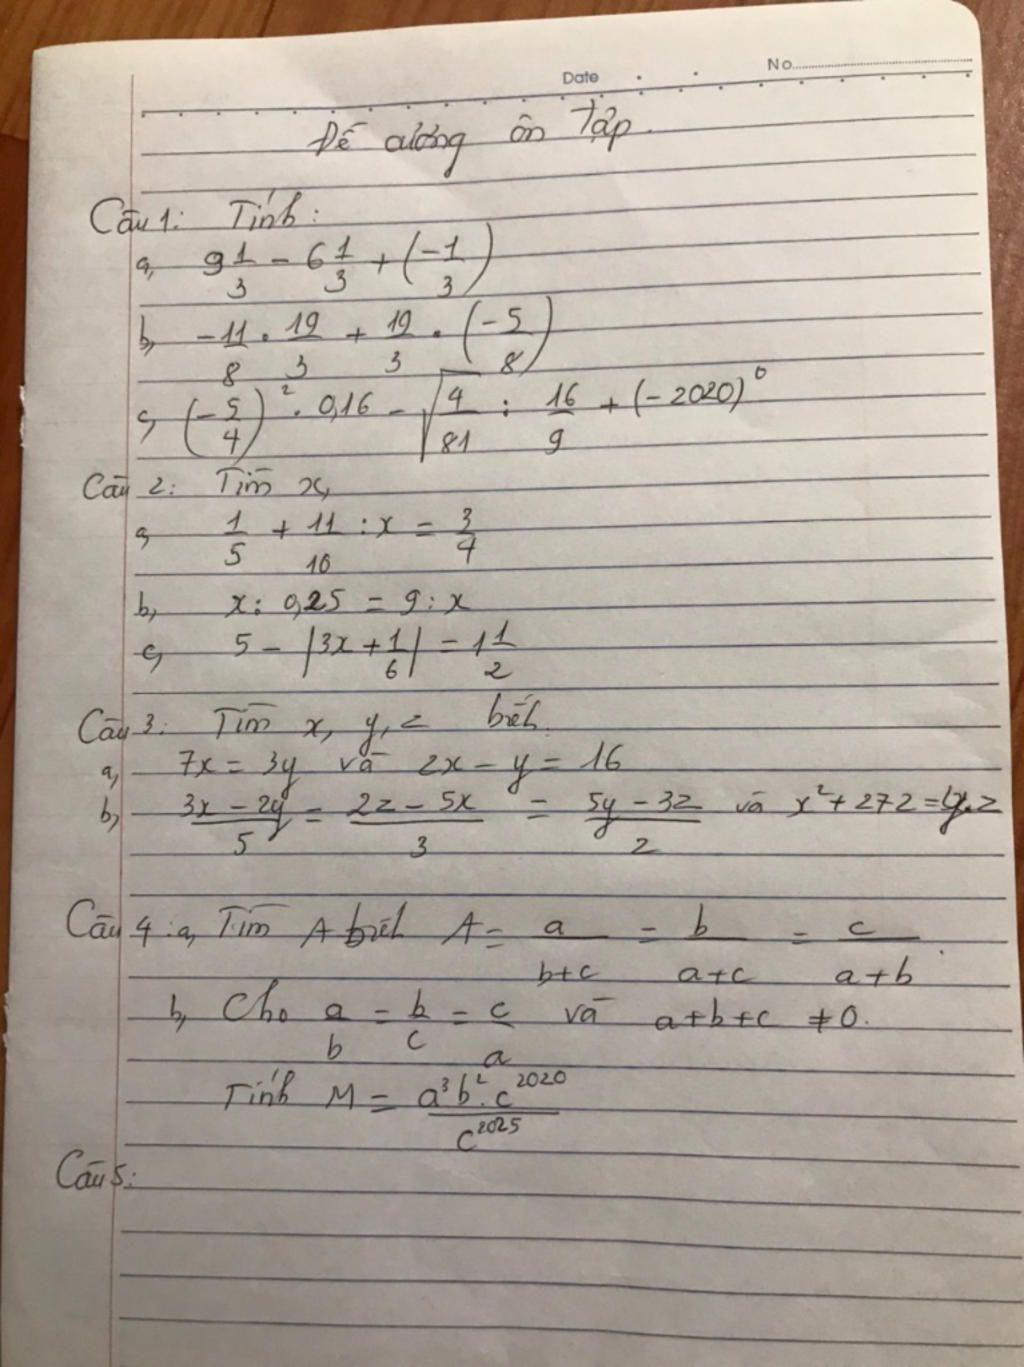 Date No
Đề cương ôn tập.
Câu 1: Tính:
a, 9 1/3 - 6 1/3 + (-1/3)
b, -11/8 . 19/3 + 19/3 . (-5/8)
c, (-5/4)² . 0,16 - √(4/81) : 16/9 + (-2020)⁰
Câu 2: Tìm x,
a, 1/5 + 11/10 : x = 3/4
b, x : 0,25 = 9 : x
c, 5 - |3x + 1/6| = 1 1/2
Câu 3: Tìm x, y, z biết.
a, 7x = 3y và 2x - y = 16
b, (3x - 2y)/5 = (2z - 5x)/3 = (5y - 3z)/2 và x² + 272 = y.z
Câu 4: a, Tìm A biết A = a/(b+c) = b/(a+c) = c/(a+b).
b, Cho a/b = b/c = c/a và a+b+c ≠ 0.
Tính M = (a³b².c²⁰²⁰)/c²⁰²⁵
Câu 5: